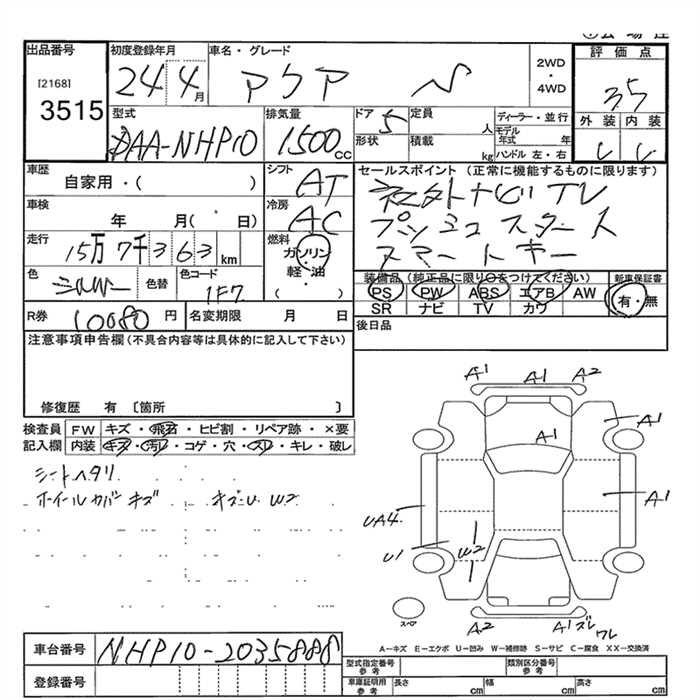 出品番号
[2168]
3515
初度登録年月
24 4月
車名・グレード
アクア
2WD
・
4WD
評価点
35
型式
DAA-NHP10
排気量
1500cc
ドア 5
形状
定員 人
積載 kg
ディーラー・並行
モデル年式 年
ハンドル 左・右
外装 内装
車歴
自家用・( )
シフト
AT
セールスポイント(正常に機能するものに限ります)
社外ナビTV
プッシュスタート
スマートキー
車検
年 月( 日)
冷房
AC
走行
15万7千363km
燃料
ガソリン・
軽・油
( )
色
シルバー
色替
色コード
1F7
装備品(純正品に限り○をつけてください)
PS PW ABS エアB AW
SR ナビ TV カワ
新車保証書
有・無
R券
10080円
名変期限 月 日
後日品
注意事項申告欄(不具合内容は具体的に記入して下さい)
修復歴 有〔箇所 〕
検査員
記入欄
FW キズ・飛石・ヒビ割・リペア跡・×要
内装 キズ・汚れ・コゲ・穴・スレ・キレ・破レ
シートヘタリ
ホイールカバーキズ キズU W2
A1 A1 A2
A1
A1
A1
UA4
U1
W2
スペア
A2 A1 ズレ ワレ
A-キズ E-エクボ U-凹み W-補修跡 S-サビ C-腐食 XX-交換済
車台番号
NHP10-2035888
登録番号
型式指定番号
参考
類別区分番号
参考
車庫証明用
参考
長さ cm 幅 cm 高さ cm